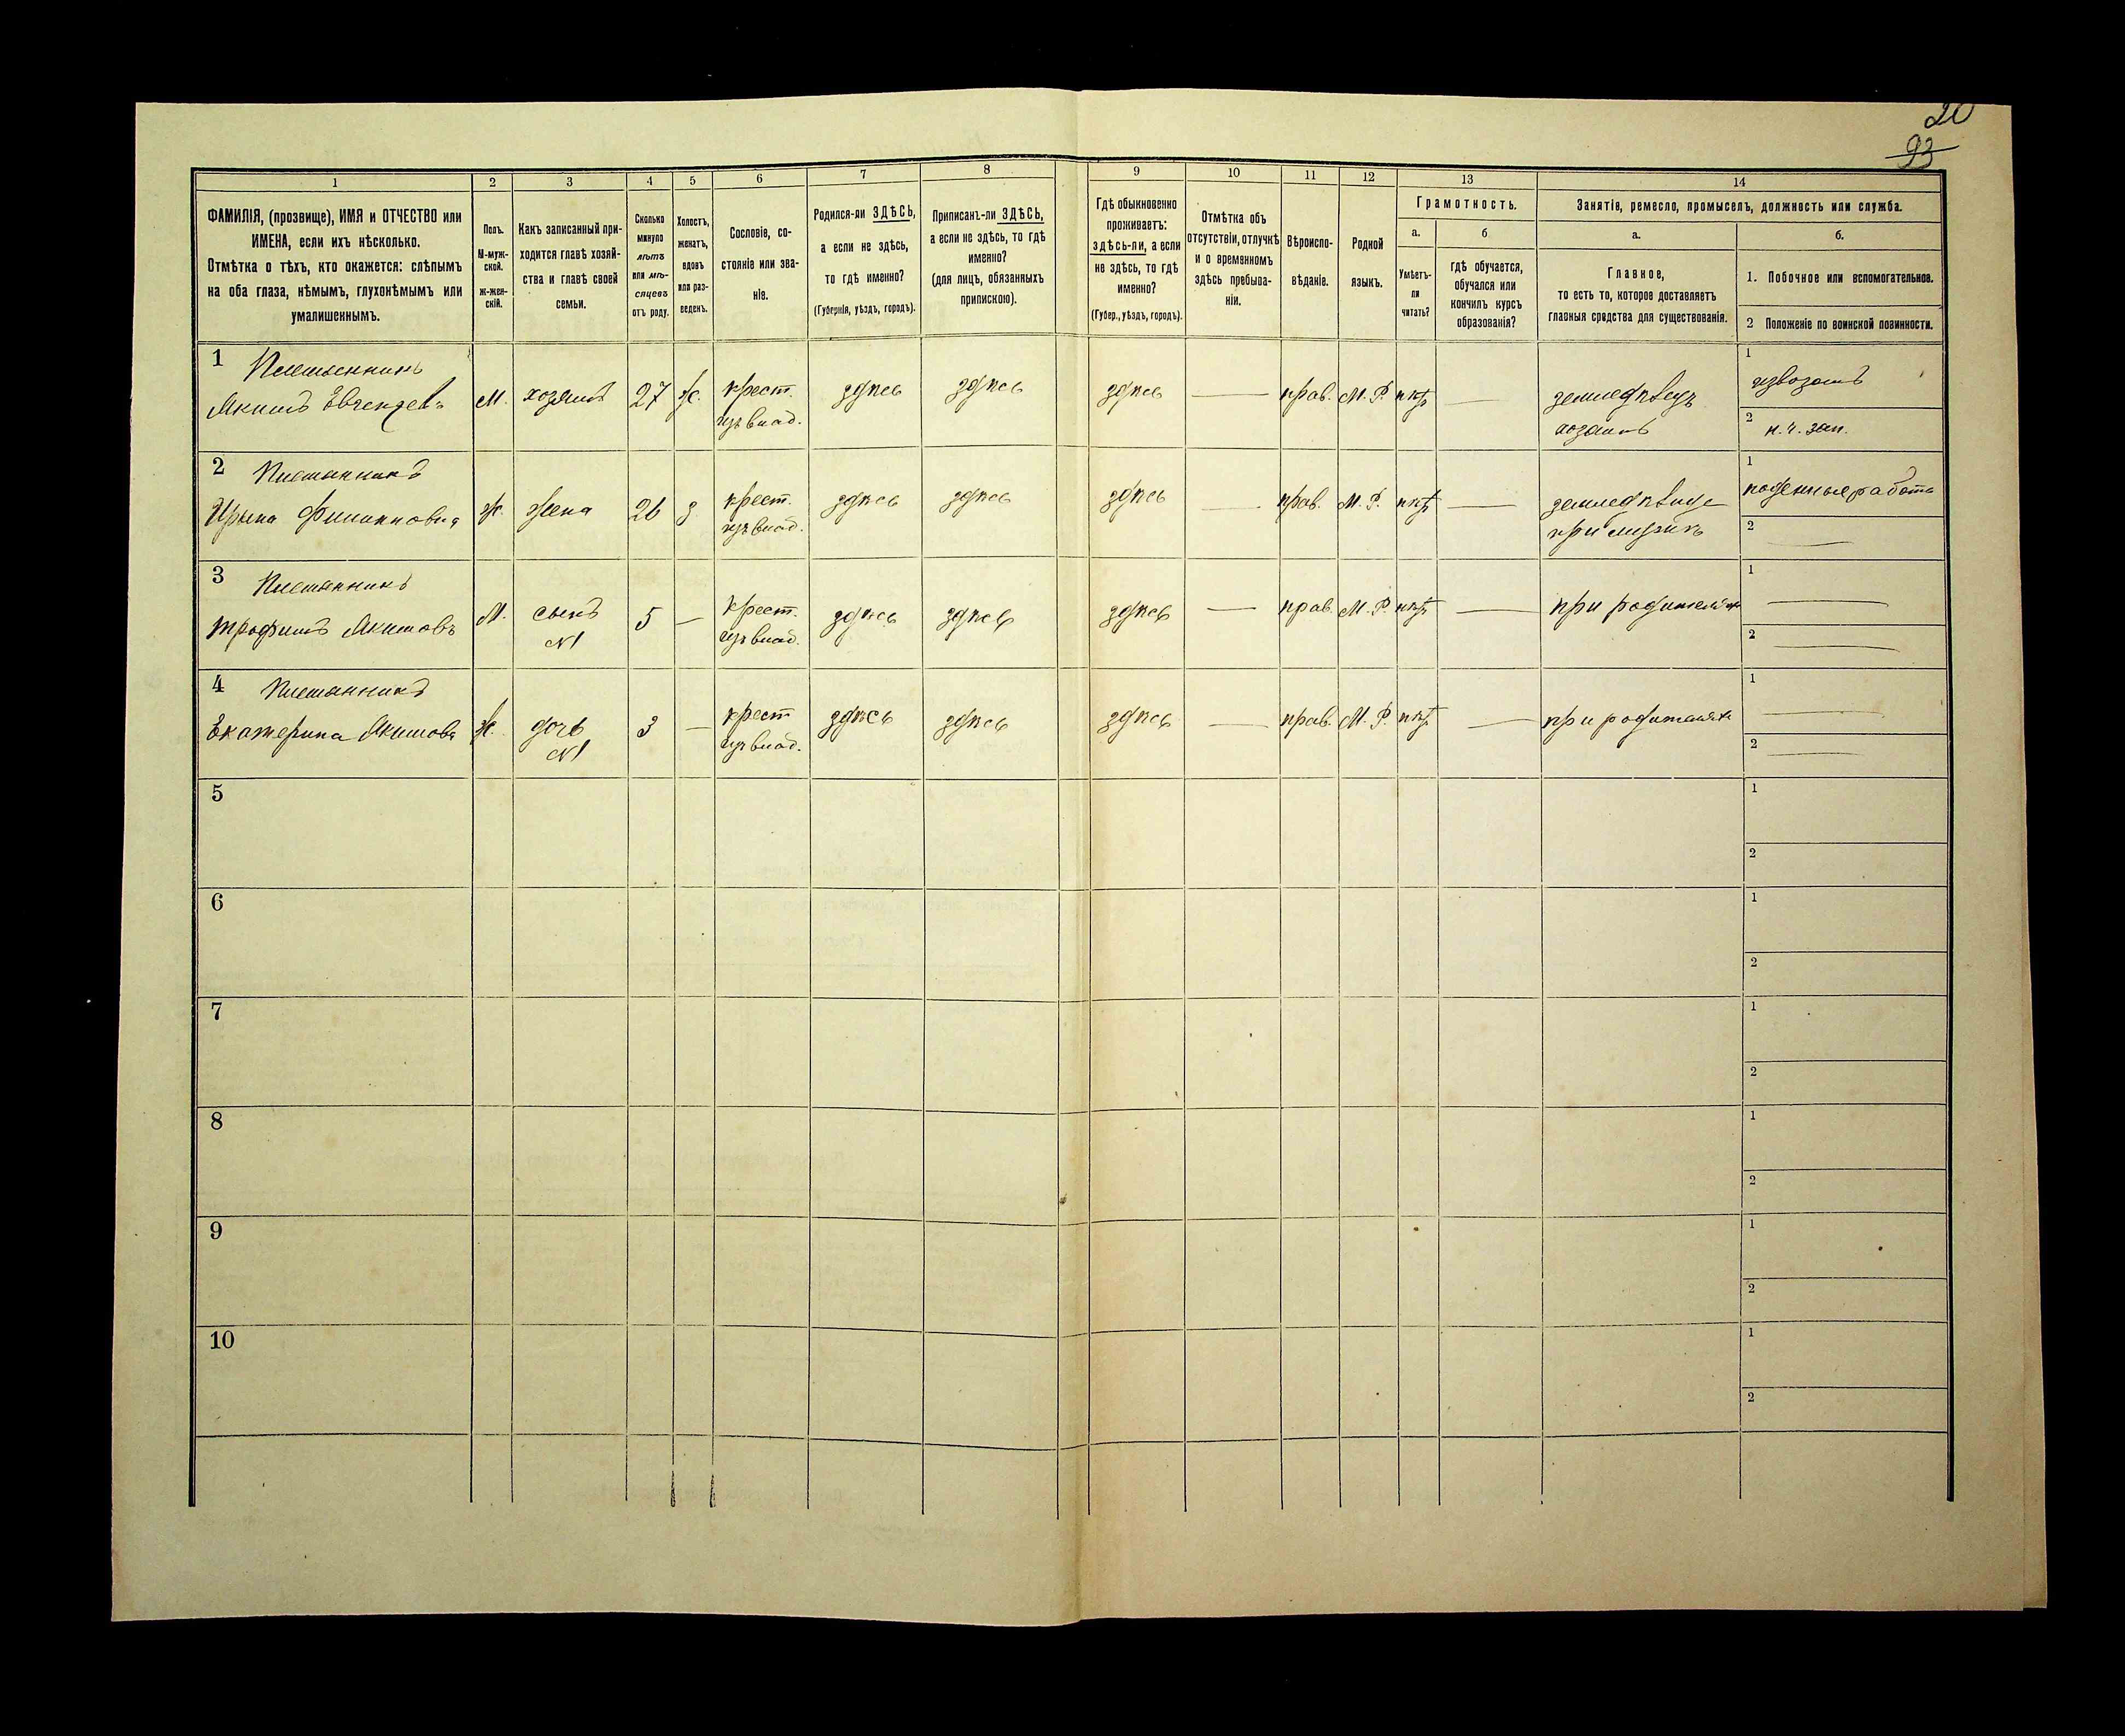 20
93
1
2
3
4
5
6
7
8
9
10
11
12
13
14
ФАМИЛІЯ, (прозвище), ИМЯ и ОТЧЕСТВО или
ИМЕНА, если ихъ нѣсколько.
Отмѣтка о тѣхъ, кто окажется: слѣпымъ
на оба глаза, нѣмымъ, глухонѣмымъ или
умалишеннымъ.
Полъ.
М-муж-
ской.
Ж-жен-
скій.
Какъ записанный при-
ходится главѣ хозяй-
ства и главѣ своей
семьи.
Сколько
минуло
лѣтъ
или мѣ-
сяцевъ
отъ роду.
Холостъ,
женатъ,
вдовъ
или раз-
веденъ.
Сословіе, со-
стояніе или зва-
ніе.
Родился-ли ЗДѢСЬ,
а если не здѣсь,
то гдѣ именно?
(Губернія, уѣздъ, городъ).
Приписанъ-ли ЗДѢСЬ,
а если не здѣсь, то гдѣ
именно?
(для лицъ, обязанныхъ
припискою).
Гдѣ обыкновенно
проживаетъ:
здѣсь-ли, а если
не здѣсь, то гдѣ
именно?
(Губер., уѣздъ, городъ).
Отмѣтка объ
отсутствіи, отлучкѣ
и о временномъ
здѣсь пребыва-
ніи.
Вѣроиспо-
вѣданіе.
Родной
языкъ.
Грамотность.
а.
Умѣетъ-
ли
читать?
б
гдѣ обучается,
обучался или
кончилъ курсъ
образованія?
Занятіе, ремесло, промыселъ, должность или служба.
а.
Главное,
то есть то, которое доставляетъ
главныя средства для существованія.
б.
1. Побочное или вспомогательное.
2 Положеніе по воинской повинности.
1
Якимъ
М. хозяинъ 27 ж. крест. здѣсь здѣсь здѣсь прав. М. Р. нѣтъ земледѣлецъ
изъ влад. хозяинъ
1 извозомъ
2 н. ч. зап.
2
Ирына Филипповна ж. жена 26 з. крест. здѣсь здѣсь здѣсь прав. М. Р. нѣтъ земледѣлице
изъ влад. при мужѣ
1 поденные работы
2
3
Трофимъ Якимовъ М. сынъ 5 крест. здѣсь здѣсь здѣсь прав. М. Р. нѣтъ при родителяхъ
N1 изъ влад.
1
2
4
Екатерина Якимова ж. дочь 3 крест здѣсь здѣсь здѣсь прав. М. Р. нѣтъ при родителяхъ
N1 изъ влад.
1
2
5
1
2
6
1
2
7
1
2
8
1
2
9
1
2
10
1
2